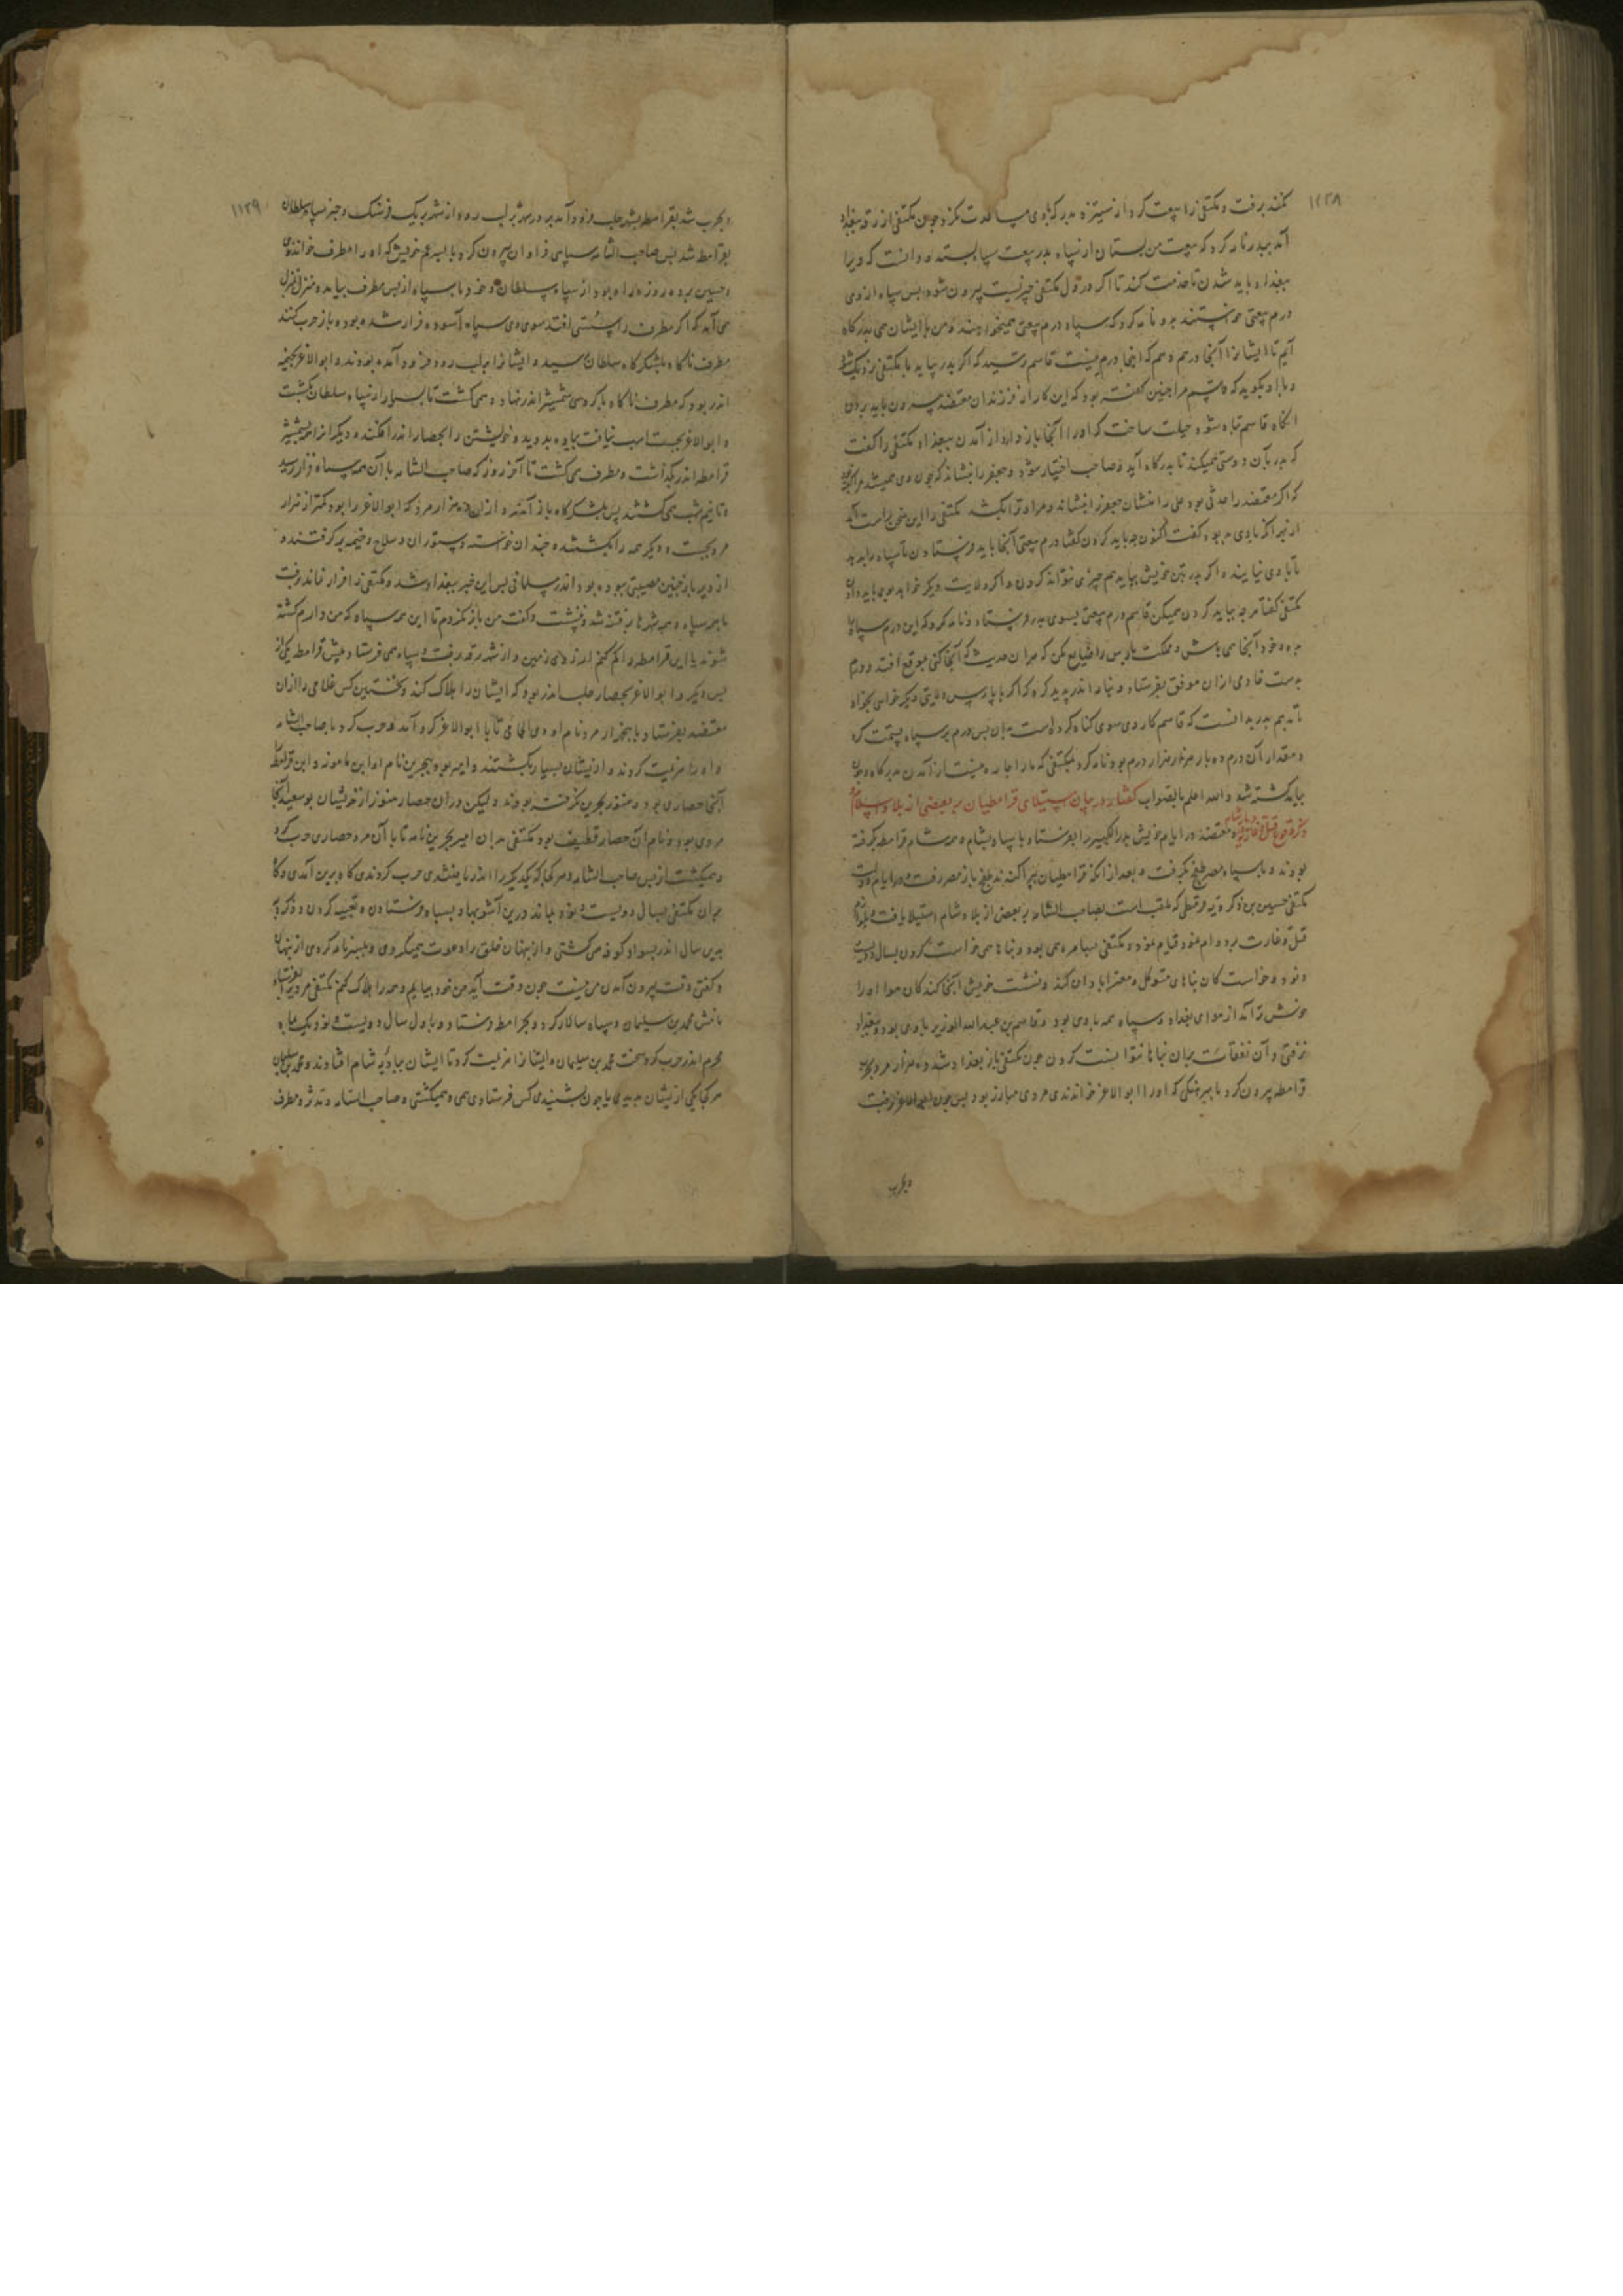 ۱۱۲۸
کنند برفت و مکتفی را بیعت کرد از ستیزه بدر که با وی مساعدت نکرد و چون مکتفی از رقه ببغداد
آمد ببدر نامه کرد که بیعت من بستان از سپاه بدر بیعت سپاه بستد و دانست که ویرا
ببغداد باید شدن تا خدمت کند تا اگر در دل مکتفی چیزیست بیرون شود پس سپاه از وی
درم بیعتی خواستند بدو نامه کرد که سپاه درم بیعتی همیخواهند و من با ایشان همی بدرگاه
آیم تا ایشانرا آنجا درم دهم که اینجا درم نیست قاسم بترسید که اگر بدر بیاید با مکتفی نزدیک شود
و با او بگوید که قاسم مرا چنین گفته بود که این کار از فرزندان معتضد بیرون باید بردن
آنگاه قاسم تباه شود حیلت ساخت که او را آنجا باز دارد از آمدن ببغداد مکتفی را گفت
که بدر بآن دوستی میکند تا بدرگاه آید و صاحب اختیار شود و جعفر را بنشاند که چون وی همیشه مرا
که اگر معتضد را حدثی بود علی را منشان جعفر را بنشاند و مرا و ترا بکشد مکتفی را این سخن راست آمد
از بهر آنکه با وی بد بود گفت اکنون چه باید کردن گفتا درم بیعتی آنجا باید فرستادن تا سپاه را بدهد
تا با وی نیایند و اگر بدر بتن خویش بیاید هم چیزی نتواند کردن و اگر ولایت دیگر خواهد بوی باید دادن
مکتفی گفتا هر چه بباید کردن همیکن قاسم درم بیعتی بسوی بدر فرستاد و نامه کرد که این درم سپاه را
بده و خود آنجا می باش و مملکت پارس را ضایع مکن که مران حدیث که آنجا کنی بموقع افتد و درم
بدست خادمی ازان موفق بفرستاد و بنامه اندر پدید کرد که اگر با پارس ولایتی دیگر خواهی بخواه
تا بدهم بدر بدانست که قاسم کار وی سوی مکتفی تباه کرده است پس درم بر سپاه قسمت کرد
و مقدار آن درم ده بار هزار هزار درم بود و نامه کرد بمکتفی که مارا چاره نیست از آمدن بدرگاه و چون
بیامد کشته شد و الله اعلم بالصواب گفتار در بیان استیلای قرامطیان بر بعضی از بلاد اسلام و
ذکر وقوع قتل و غارت در دیار شام معتضد در ایام خویش بدر الکبیر را بفرستاد با سپاه بشام و مر شام قرامطه گرفته
بودند و با سپاه مصر طغج بگرفت و بعد از آنکه قرامطیان پراگنده طغج باز مصر رفت و در ایام دولت
مکتفی حسین بن زکرویه قرمطی که ملقب است بصاحب الشامه بر بعضی از بلاد شام استیلا یافت و بلوازم
قتل و غارت بر دوام نمود قیام نمود و مکتفی بسامره همی بود و بناها همی خواست کردن بسال دویست
و نود و خواست کان بناهای متوکل و معتز آبادان کند و نشست خویش آنجا کند کان هوا او را
خوش تر آمد از هوای بغداد و سپاه همه با وی بود و قاسم بن عبدالله الوزیر با وی بود و ببغداد
نرفتی و آن نفقات بران بناها نتوانست کردن چون مکتفی باز بغداد شد ده هزار مرد بحرب
قرامطه بیرون کرد با سرهنگی که او را ابو الاغر خواندندی مردی مبارز بود پس چون ابو الاغر برفت
و بحرب
۱۱۲۹
و بحرب شد بقرامطه بشهر حلب فرود آمد بر در شهر بر لب رود از شهر بر یک فرسنگ و خبر سپاه سلطان
بقرامطه شد پس صاحب الشامه سپاهی فراوان بیرون کرد با پسر عم خویش که او را مطرف خواندندی
و چنین بر ده روزه راه بود از سپاه سلطان و خود با سپاه از پس مطرف بیامد و منزل منزل
می آمد که اگر مطرف را سستی افتد سوی وی سپاه آسوده فراز شده بود و باز حرب کنند
مطرف ناگاه بلشکرگاه سلطان رسید و ایشان را بر لب رود فرود آمده بودند و ابو الاغر بخیمه
اندر بود که مطرف ناگاه بانگ کرد و شمشیر اندر نهاد و همی کشت تا بسیار از سپاه سلطان بکشت
و ابو الاغر بجست اسب نیافت پیاده بدوید و خویشتن را بحصار اندر افکند و دیگرانرا بشمشیر
قرامطه اندر بگذاشت و مطرف همی کشت تا آخر روز که صاحب الشامه با آن همه سپاه فراز رسید
و تا نیم شب همی کشتند پس بلشکرگاه باز آمدند و ازان ده هزار مرد که ابو الاغر را بود کمتر از هزار
مرد بجست و دیگر همه را بکشتند و چندان خواسته و ستوران و سلاح و خیمه برگرفتند و
از دیر باز چنین مصیبتی نبوده بود اندر مسلمانی پس این خبر ببغداد شد و مکتفی را قرار نماند و رفت
با همه سپاه و همه شهرها پر فتنه شد و نشست و گفت من باز نگردم تا این همه سپاه که من دارم کشته
شوند یا این قرامطه را کم کنم از روی زمین و از شهر رقه رفت و سپاه همی فرستاد پیش قرامطه یکی از
پس دیگر و ابو الاغر بحصار حلب اندر بود که ایشان را هلاک کند و نخستین کس غلامی را ازان
معتضد بفرستاد با پنجهزار مرد نام او تا با ابو الاغر گرد آمد و حرب کرد با صاحب الشامه
و او را هزیمت کردند و از ایشان بسیار بکشتند و امیر بود ببحرین نام او ابن بانو و این قرامطه
آنجا حصاری بود و هنوز بحرین نگرفته بودند و لیکن دران حصار هنوز از خویشان بو سعید آنجا
مردی بود و نام آن حصار قطیف بود مکتفی بدان امیر بحرین نامه تا با آن مرد حصاری حرب کرد
و همیکشت از پس صاحب الشامه و هر کجا که یکدیگر را اندر یافتندی حرب کردندی گاه برین آمدی و گاه
بران مکتفی بسال دویست و نود بماند درین آشوبها و سپاه فرستادن و تعبیه کردن و زکرویه
بدین سال اندر بسواد کوفه می گشتی و از پنهان خلق را دعوت همیکردی و بپسر نامه کردی از پنهان
و گفتی وقت بیرون آمدن من نیست چون وقت آید من خود بیایم و همه را هلاک کنم مکتفی مر دبیر را بفرستاد
نامش محمد بن سلیمان و سپاه سالار کرد و بحرب قرامطه فرستاد و باول سال دویست و نود و یک ماه
محرم اندر حرب کرد سخت محمد بن سلیمان و ایشان را هزیمت کرد تا ایشان ببادیه شام افتادند و محمد بن سلیمان
هر کجا یکی از ایشان بدیدی یا چون بشنیدی کس فرستادی همی و همیکشتی و صاحب الشامه و مدثر و مطرف